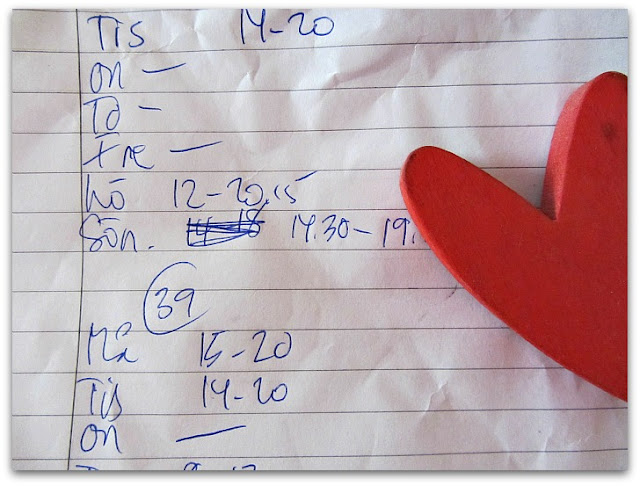 Tis 14-20
on —
To -
Fre —
Lö 12-20.15
Sön. 14.30-19.
39
Må 15-20
Tis 14-20
on —